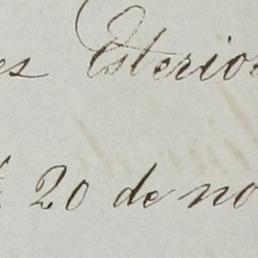 es Esterior
20 de no